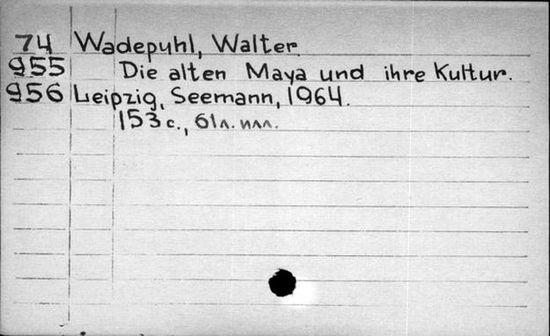 74 Wadepuhl, Walter
955 Die alten Maya und ihre Kultur.
956 Leipzig, Seemann, 1964.
153 с., 61 л. илл.